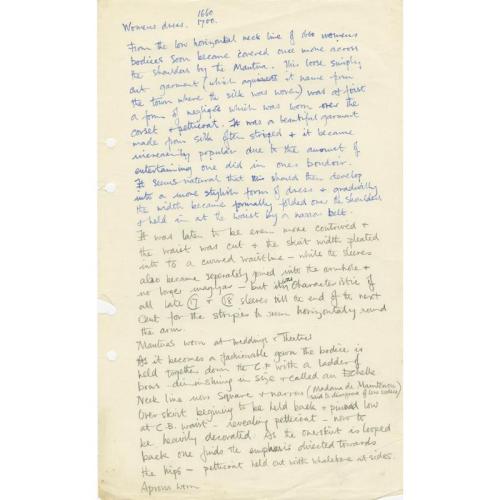 Womens dress. 1660 1700.
From the low horizontal neck line of 1660 womens
bodices soon became covered once more across
the shoulders by the Mantua. This loose simply
cut garment (which it name from
the town where the silk was woven) was at first
a form of negligée which was worn over the
corset & petticoat. It was a beautiful garment
made from silk often striped & it became
increasingly popular due to the amount of
entertaining one did in ones boudoir.
It seems natural that this should then develop
into a more stylish form of dress & gradually
the width became formally folded over the shoulders
& held in at the waist by a narrow belt.
It was later to be even more contrived &
the waist was cut & the skirt width pleated
into to a curved waistline – while the sleeves
also became separately joined into the armhole &
no longer magyar – but it was characteristic of
all late 17 & 18 sleeves till the end of the next
cent for the stripes to seem horizontally round
the arm.
Mantuas worn at weddings & Theatres
As it becomes a fashionable gown the bodice is
held together down the C.F. with a ladder of
bows diminishing in size & called an Echelle
Neck line now square & narrow (Madame de Maintenon
said to disapprove of low bodices)
Overskirt begining to be held back & pinned low
at C.B. waist – revealing petticoat – now to
be heavily decorated. As the overskirt is looped
back one finds the emphasis directed towards
the hips – petticoat held out with whalebone at sides.
Aprons worn